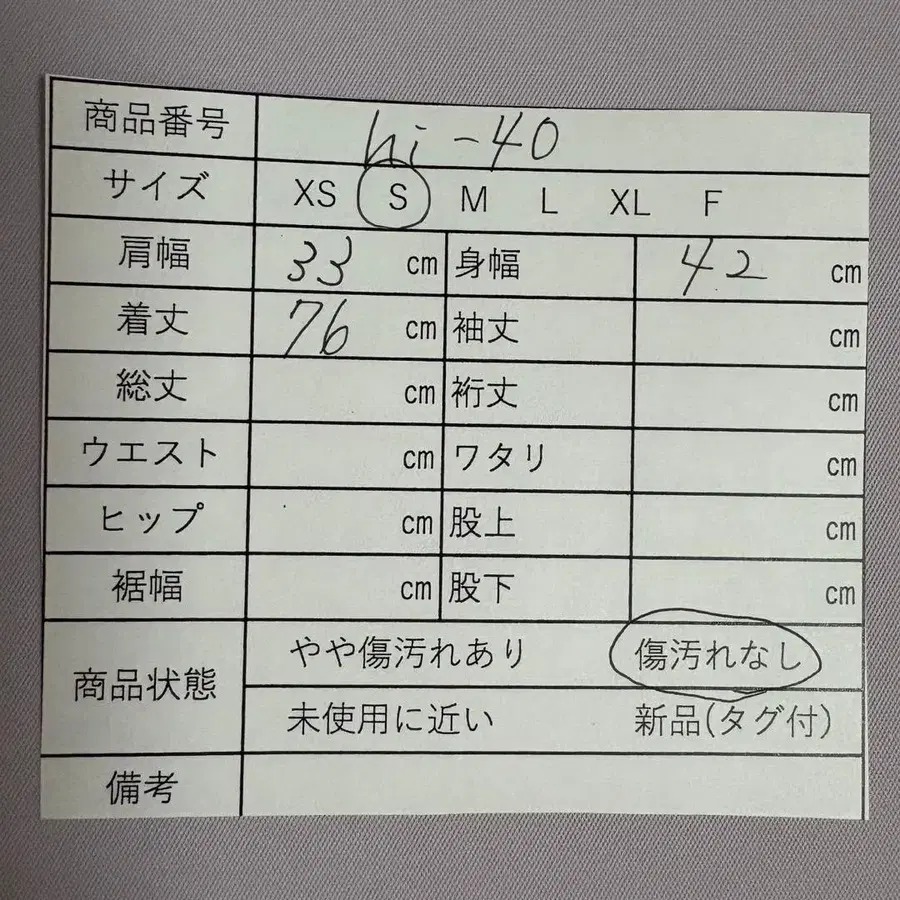 商品番号 hi-40
サイズ XS S M L XL F
肩幅 33 cm 身幅 42 cm
着丈 76 cm 袖丈 cm
総丈 cm 裄丈 cm
ウエスト cm ワタリ cm
ヒップ cm 股上 cm
裾幅 cm 股下 cm
商品状態 やや傷汚れあり 傷汚れなし
未使用に近い 新品(タグ付)
備考